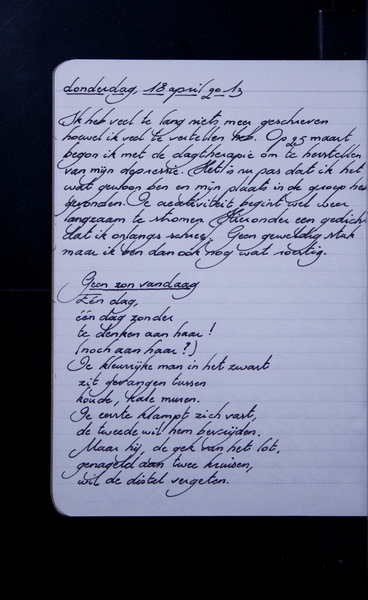 donderdag, 18 april 2013
Ik heb veel te lang niets meer geschreven
hoewel ik veel te vertellen heb. Op 25 maart
begon ik met de dagtherapie om te herstellen
van mijn depressie. Het is nu pas dat ik het
wat gewoon ben en mijn plaats in de groep heb
gevonden. De creativiteit begint wel weer
langzaam te stromen. Hieronder een gedicht
dat ik onlangs schreef. Geen geweldig stuk
maar ik ben dan ook nog wat roestig.
Geen zon vandaag
Eén dag,
één dag zonder
te denken aan haar!
(noch aan haar?)
De kleurrijke man in het zwart
zit gevangen tussen
koude, kale muren.
De eerste klampt zich vast,
de tweede wil hem bevrijden.
Maar hij, de gek van het lot,
genageld aan twee kruisen,
wil de distel vergeten.